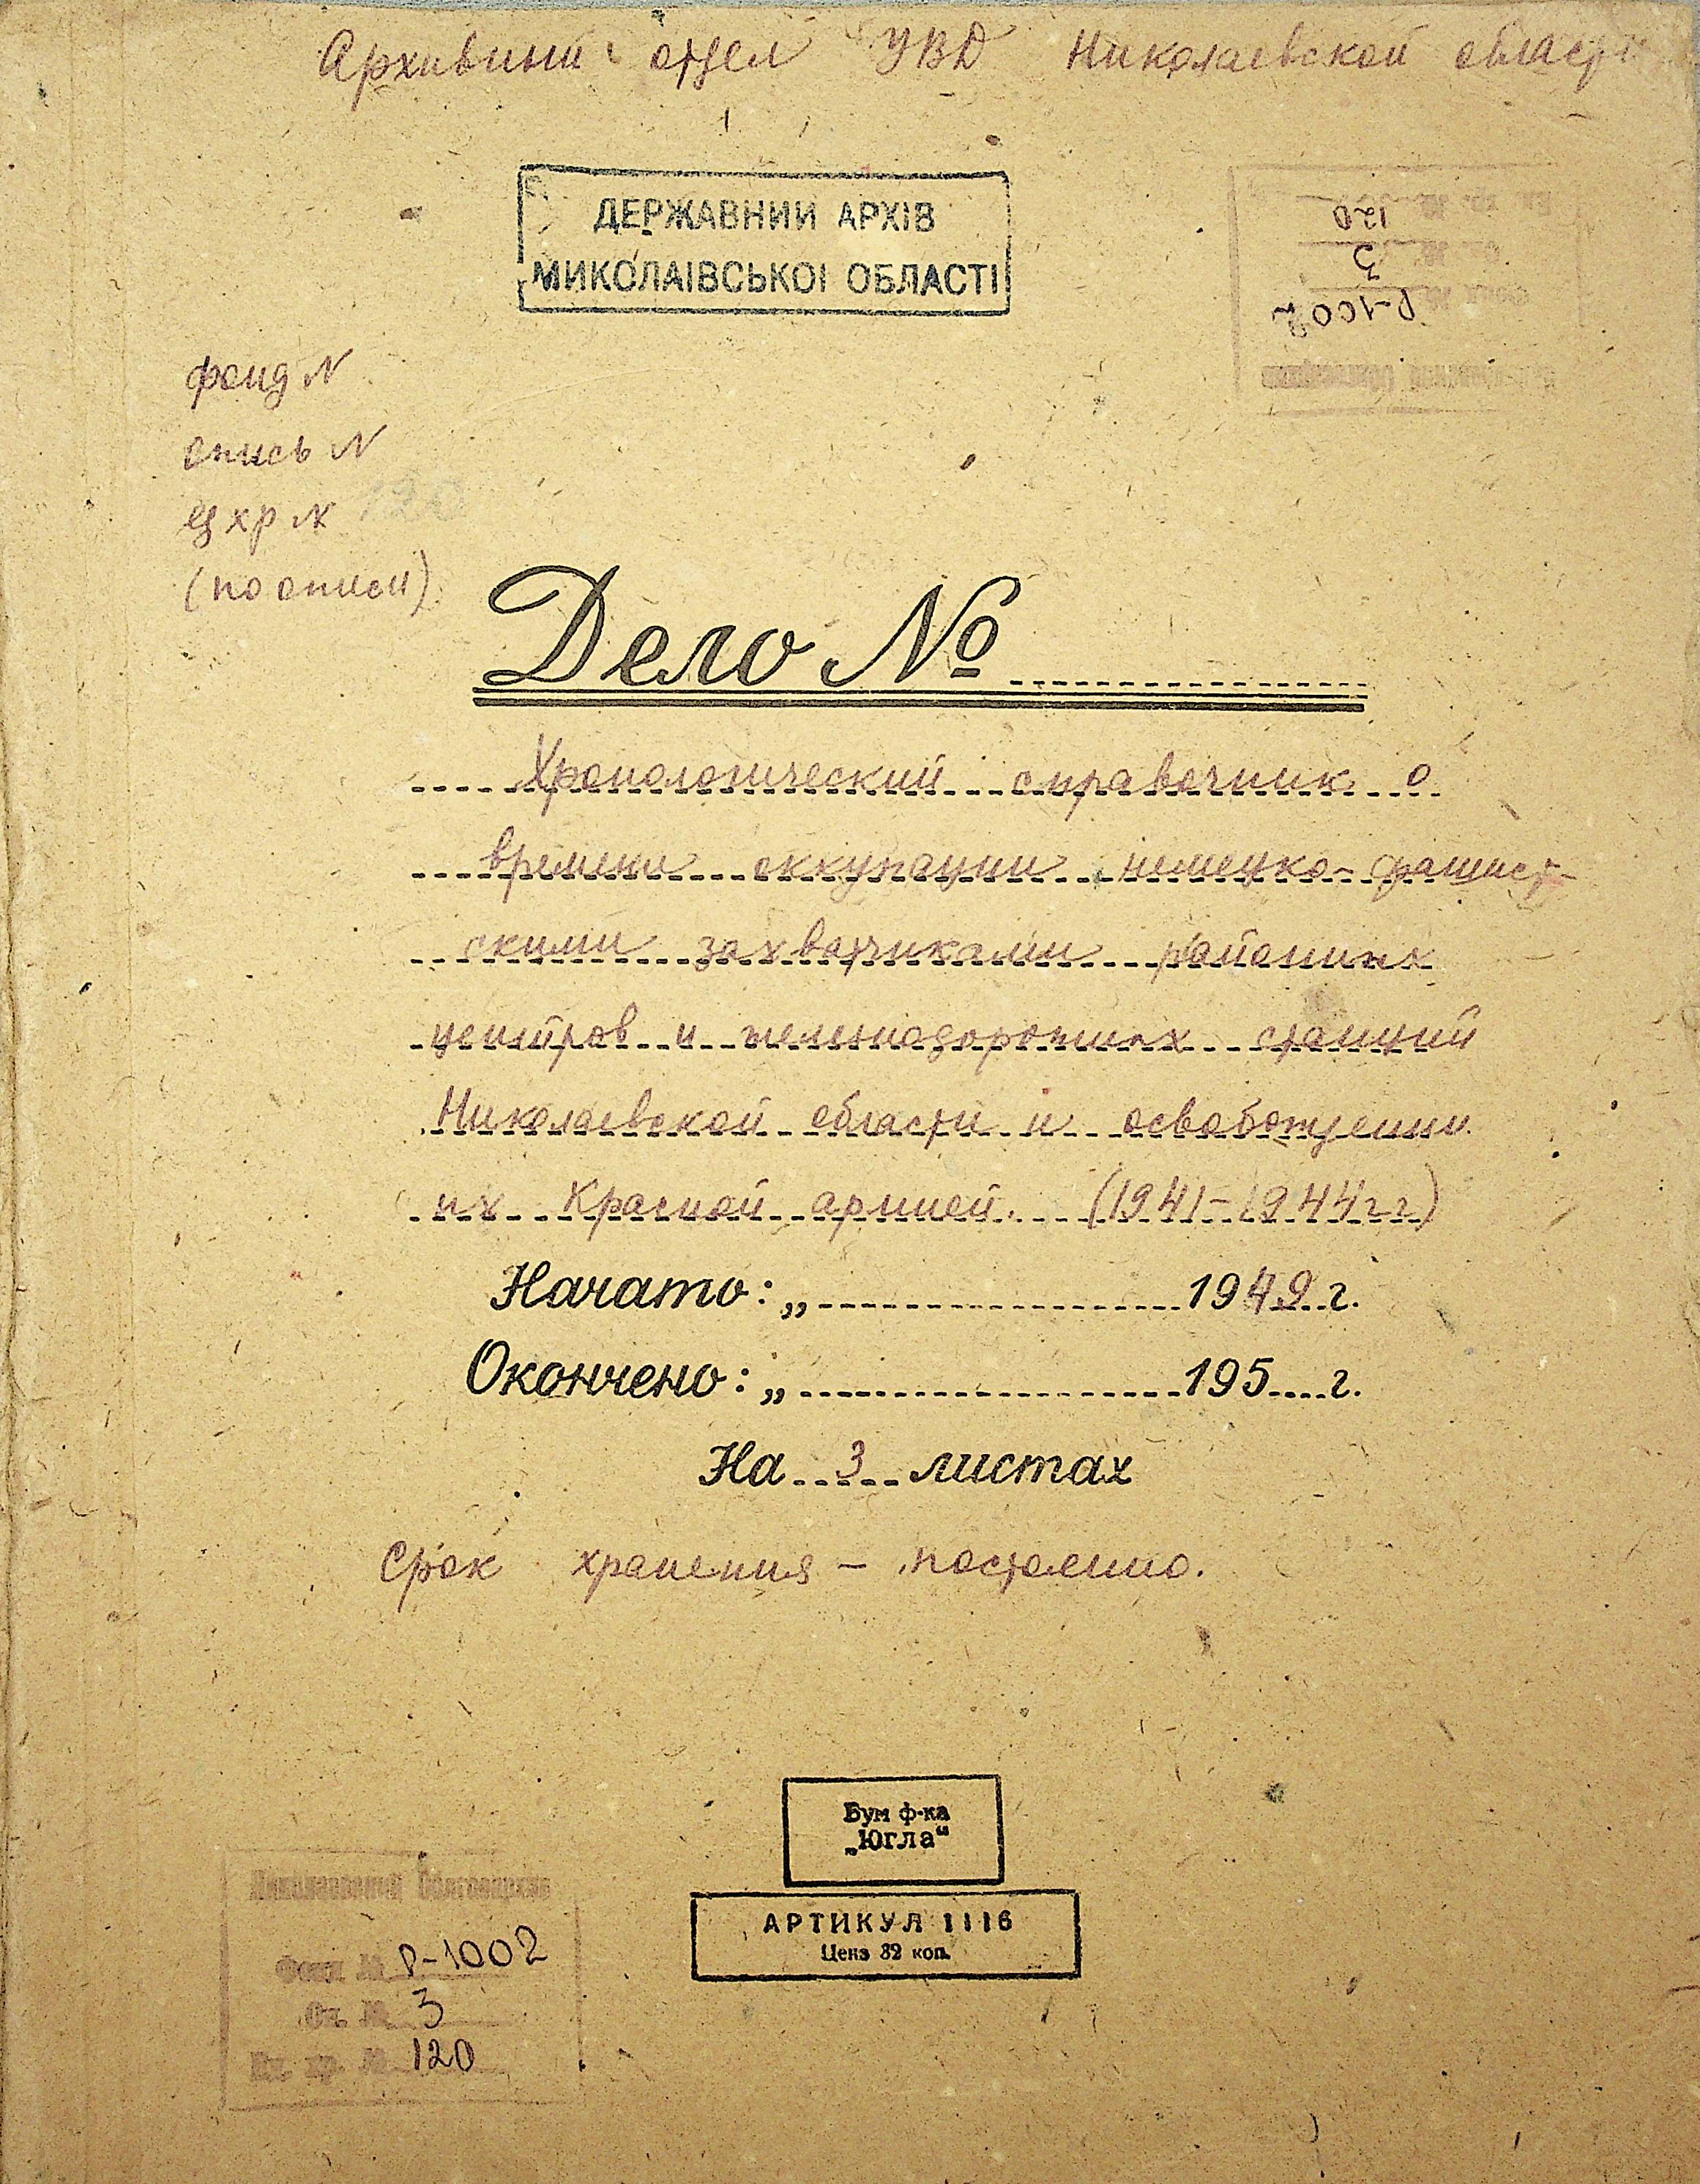 Архивный отдел УВД Николаевской области
ДЕРЖАВНИЙ АРХІВ
МИКОЛАЇВСЬКОЇ ОБЛАСТІ
120
3
Р-1002
фонд N
опись N
ед хр N 120
(по описи)
Дело №
Хронологический справочник о
времени оккупации немецко-фашист-
скими захватчиками районных
центров и железнодорожных станций
Николаевской области и освобождении
их Красной армией. (1941-1944гг)
Начато: „ 1949 г.
Окончено: „ 195 г.
На 3 листах
Срок хранения – постоянно.
Бум ф-ка
„Югла“
АРТИКУЛ 1116
Цена 82 коп.
Николаевский Облгосархив
Фонд № Р-1002
Оп. № 3
Ед. хр. № 120